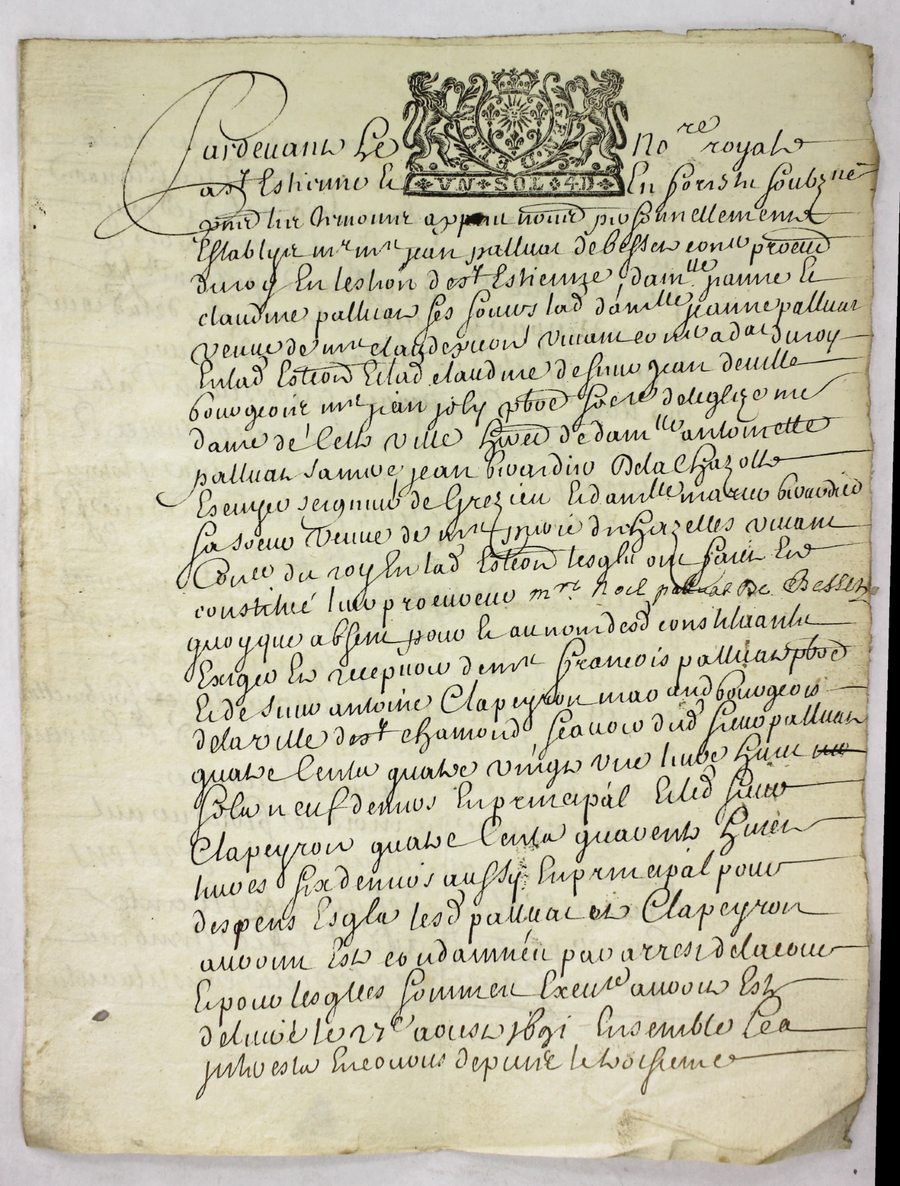 GEN. D. LYON
Pardevant Le No.re royal
a st Estienne et VN SOL 4D En forestz soubzné
personnellement
Establys mr mre jean palluat de besset conr procur
du roy En lestion de st Estienne, damlle janne et
claudine palluat ses soeurs lad damlle jeanne palluat
veuve de mre claude vivant conr adat du roy
En lad Estion Et lad claudine de sieur jean deville
bourgeois mre jean joly pbre soere de leglize no
dame de Cette ville de damlle antoinette
palluat jean De la Chazotte
Escuyer seigneur de Grezieu et damlle marie
sa soeur veuve de mre des hazelles vivant
Conr du roy En lad Estion lesqls ont fait Et
constitué leur procureur mre Noel palluat De Besset
quoyque absent pour et au nom desd constituants
Exiger et recepvoir de mre francois palluat pbre
et de sieur antoine Clapeyron marchand bourgeois
de la ville de st chamond scavoir dud sieur palluat
quatre Cents quatre vingt une livre huit
sols neuf deniers En principal et dud sieur
Clapeyron quatre Cents quarente huict
livres six deniers aussy En principal pour
despens Esqls lesd palluat et Clapeyron
auroint Esté condamnés par arrest de la cour
Et pour lesqlles sommes Exeutre auroit Esté
delivré le 27e aoust 1691 Ensemble Les
interests Encourus depuis le troisieme